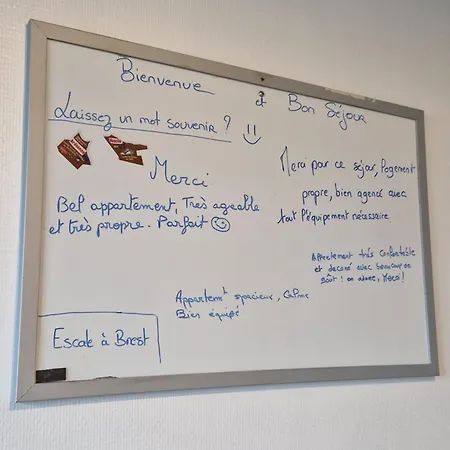 Bienvenue et Bon Séjour
Laissez un mot souvenir ?
Merci
Bel appartement, Très agréable
et très propre. Parfait
Merci pour ce séjour, logement
propre, bien agencé avec
tout l'équipement nécessaire
Appartement très confortable
et décoré avec beaucoup de
goût : on adore, Merci !
Appartemt spacieux, Calme
Bien équipé
Escale à Brest